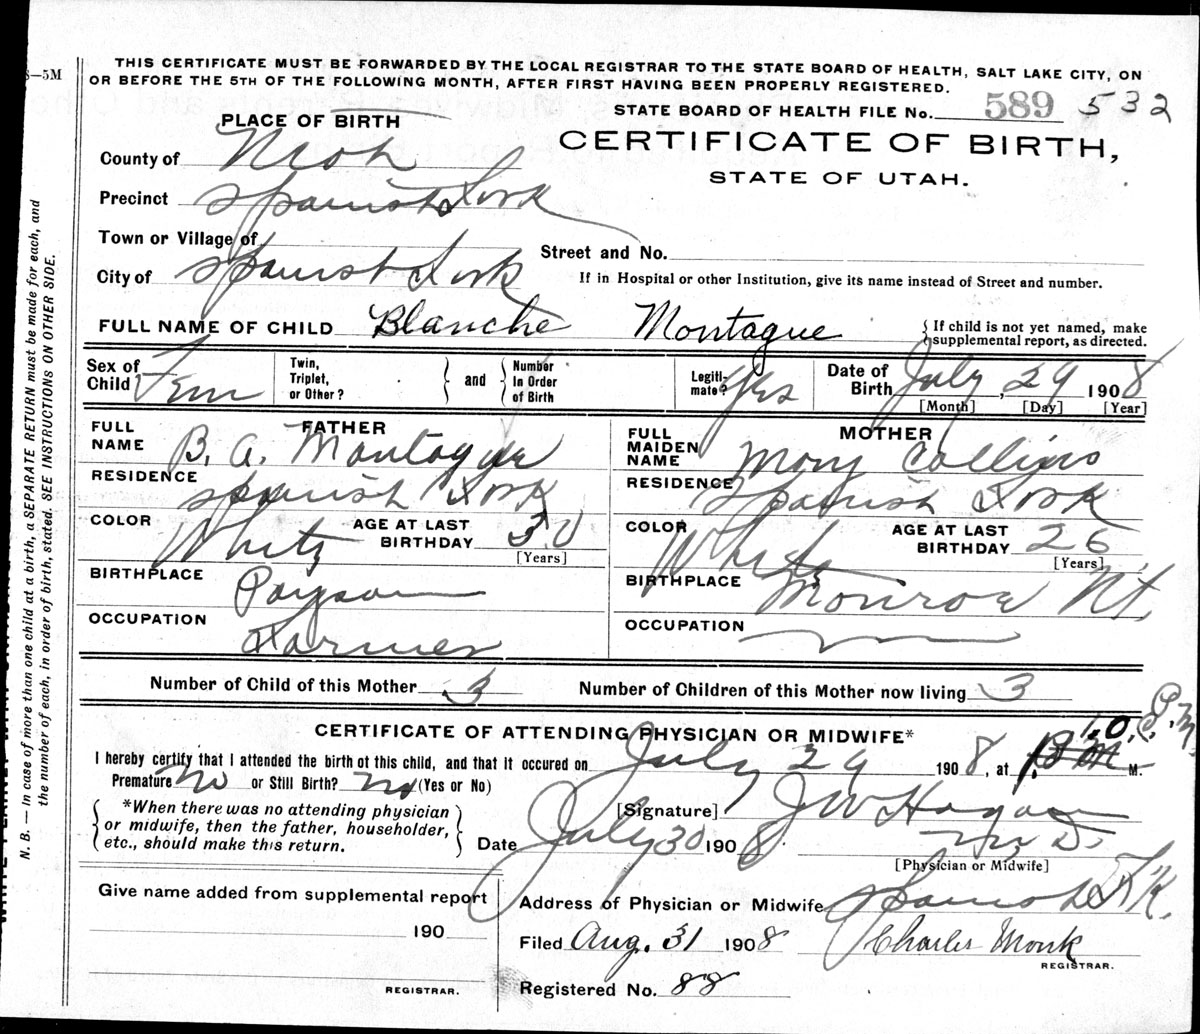 8—5M
THIS CERTIFICATE MUST BE FORWARDED BY THE LOCAL REGISTRAR TO THE STATE BOARD OF HEALTH, SALT LAKE CITY, ON
OR BEFORE THE 5TH OF THE FOLLOWING MONTH, AFTER FIRST HAVING BEEN PROPERLY REGISTERED.
STATE BOARD OF HEALTH FILE No. 589 532
PLACE OF BIRTH
CERTIFICATE OF BIRTH,
STATE OF UTAH.
County of Utah
Precinct Spanish Fork
Town or Village of
Street and No.
City of Spanish Fork
If in Hospital or other Institution, give its name instead of Street and number.
FULL NAME OF CHILD Blanche Montague
If child is not yet named, make supplemental report, as directed.
Sex of Child Fem
Twin, Triplet, or Other?
and
Number In Order of Birth
Legitimate? Yes
Date of Birth July, 29 1908
[Month] [Day] [Year]
FATHER
FULL NAME B. A. Montague
RESIDENCE Spanish Fork
COLOR White
AGE AT LAST BIRTHDAY 30
[Years]
BIRTHPLACE Payson
OCCUPATION Farmer
MOTHER
FULL MAIDEN NAME Mary Collins
RESIDENCE Spanish Fork
COLOR White
AGE AT LAST BIRTHDAY 26
[Years]
BIRTHPLACE Monroe Ut.
OCCUPATION
Number of Child of this Mother 3
Number of Children of this Mother now living 3
CERTIFICATE OF ATTENDING PHYSICIAN OR MIDWIFE*
I hereby certify that I attended the birth of this child, and that it occured on July 29 1908, at 10, P.M. M.
Premature No or Still Birth? No (Yes or No)
*When there was no attending physician or midwife, then the father, householder, etc., should make this return.
[Signature] J W Hagan
M. D.
[Physician or Midwife]
Date July 30 1908
Give name added from supplemental report
190
REGISTRAR.
Address of Physician or Midwife Spanish F'k.
Filed Aug. 31 1908
Charles Monk
REGISTRAR.
Registered No. 88
N. B. — In case of more than one child at a birth, a SEPARATE RETURN must be made for each, and
the number of each, in order of birth, stated. SEE INSTRUCTIONS ON OTHER SIDE.